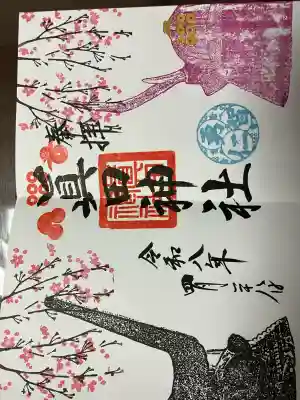 奉拝
眞田神社
令和八年
四月二十八日